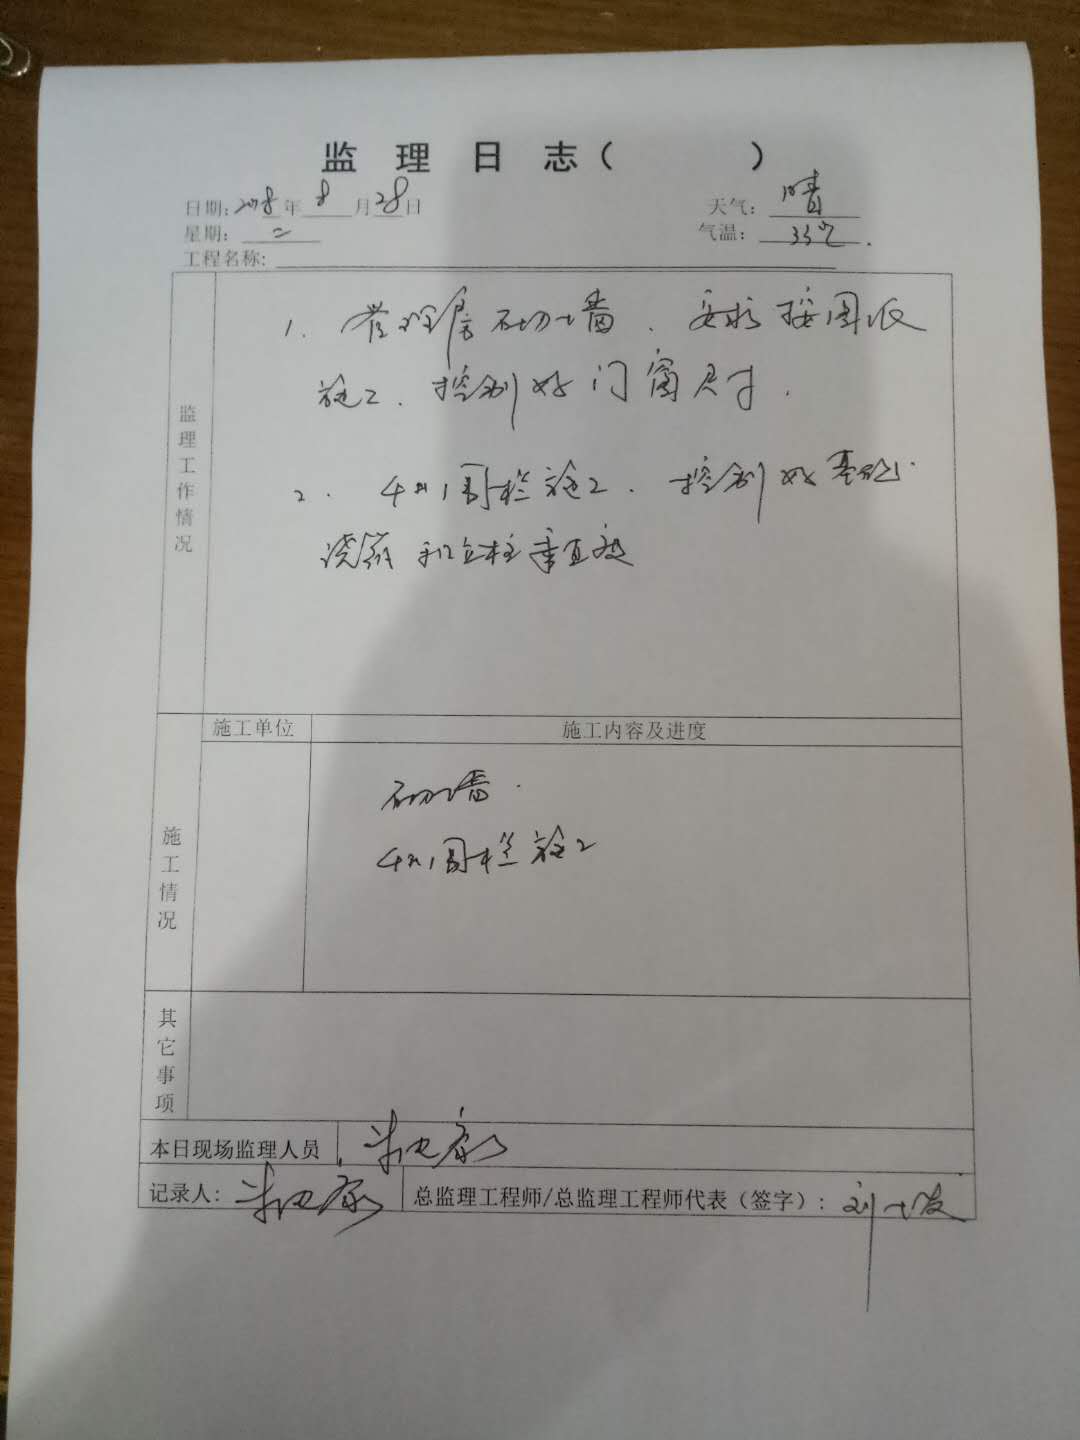 监理日志（ ）
日期：2018年8月28日 天气：晴
星期：二 气温：33℃.
工程名称：
监理工作情况
1. 管理房砌墙、要求按图纸
施工、控制好门窗尺寸.
2. 栏施工、控制好基础
浇筑和立柱垂直度
施工单位 施工内容及进度
施工情况
砌墙.
栏施工
其它事项
本日现场监理人员
记录人： 总监理工程师/总监理工程师代表（签字）：刘